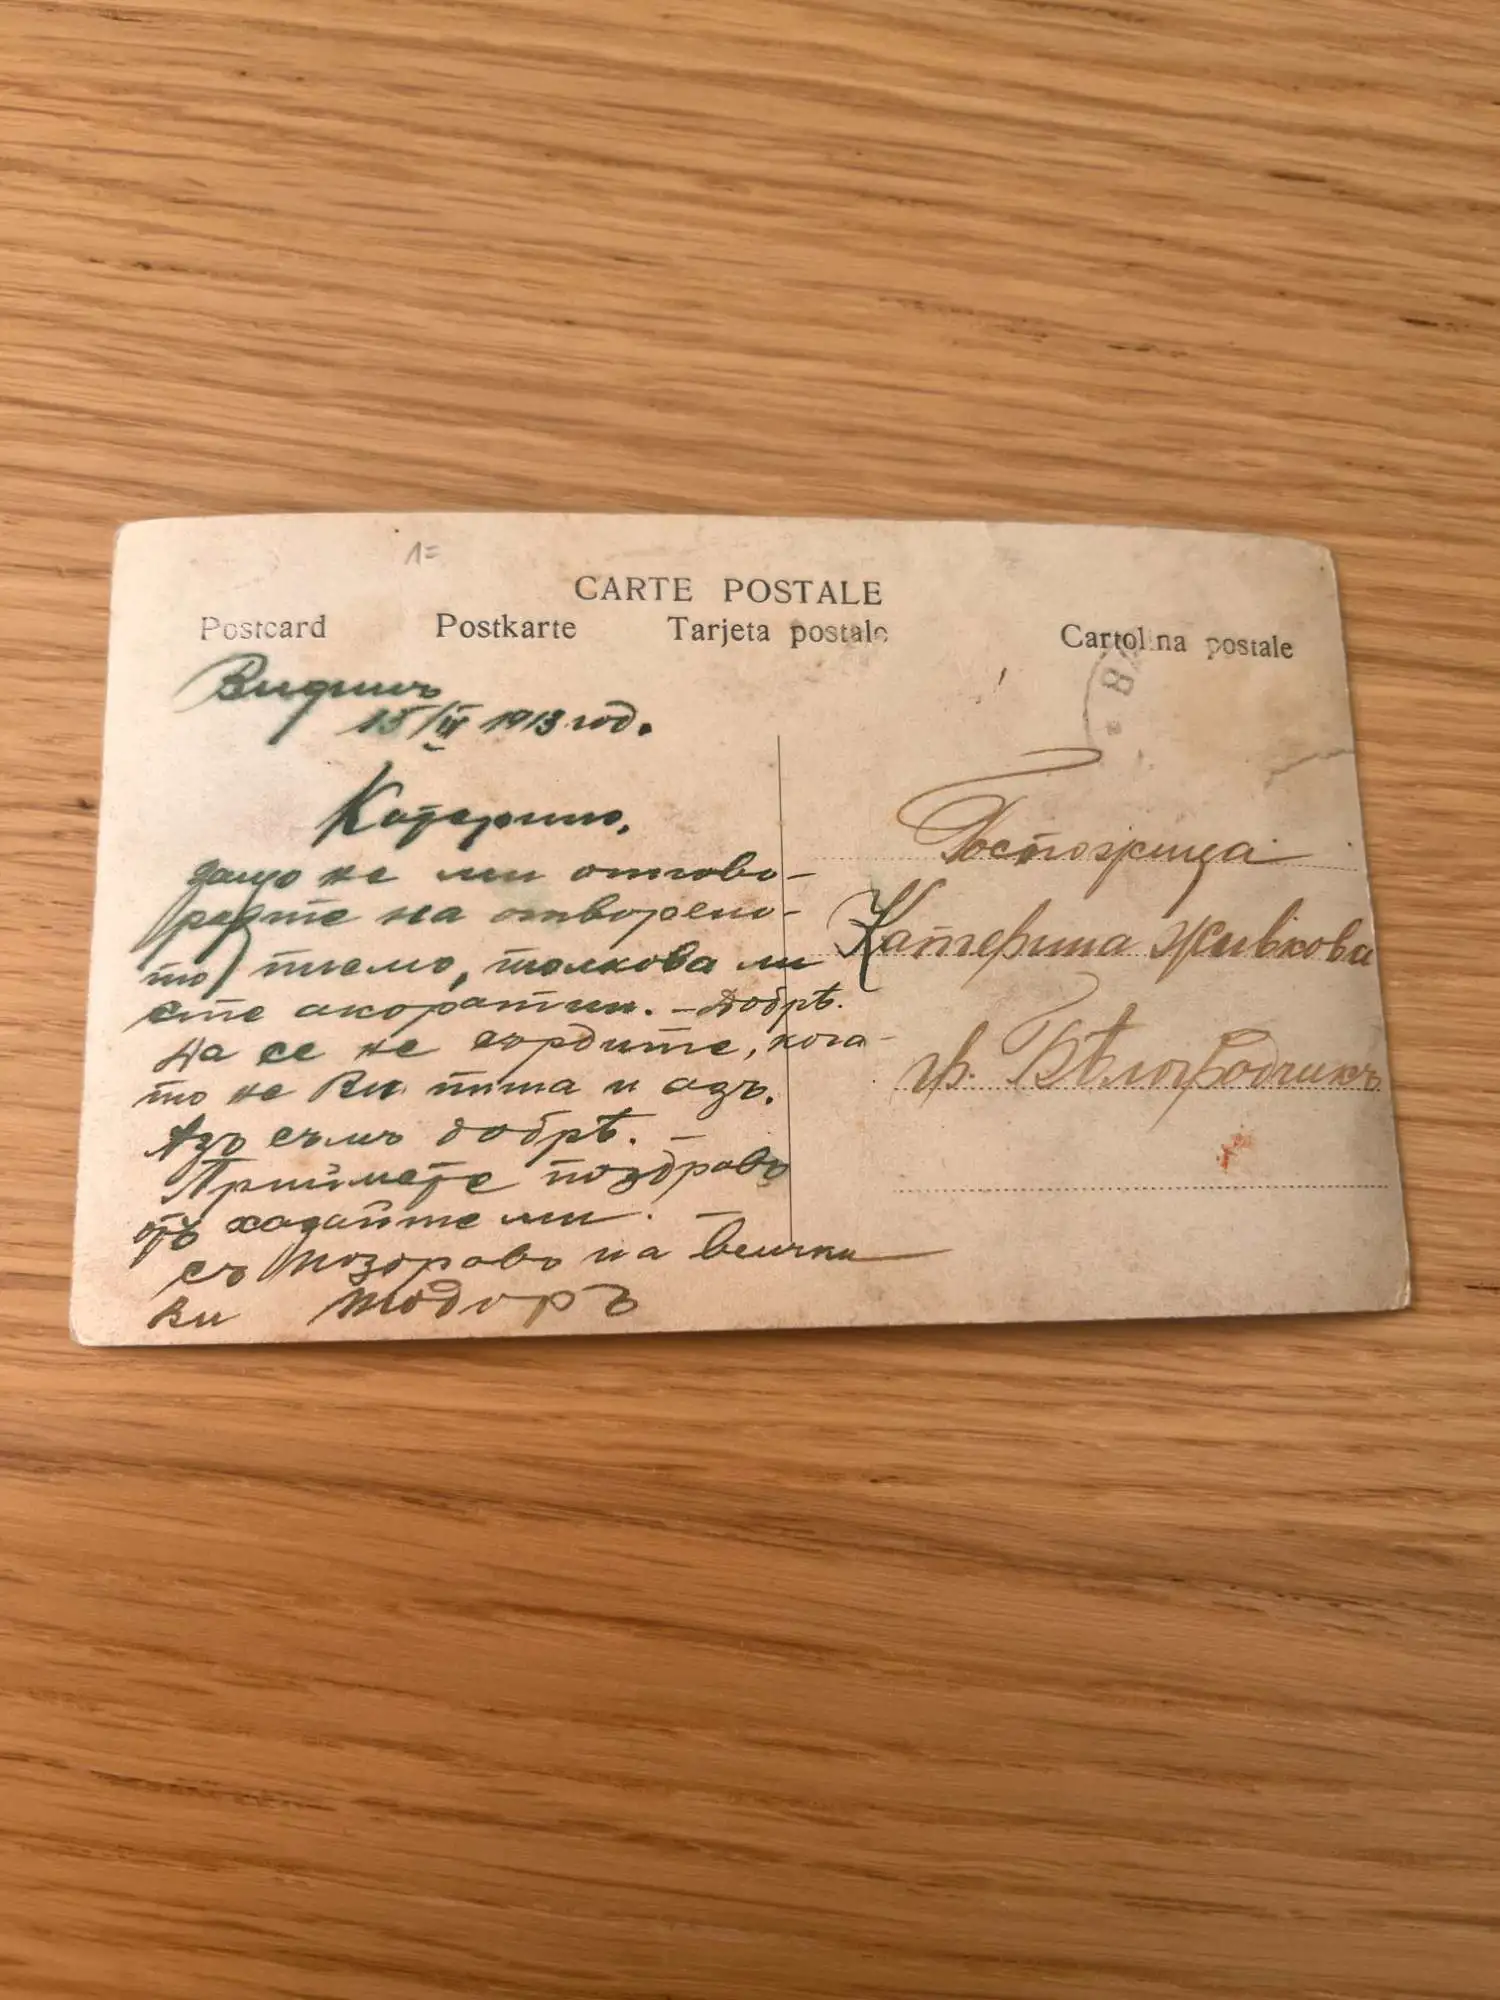 1=
CARTE POSTALE
Postcard Postkarte Tarjeta postale Cartolina postale
Видинъ
15/III 1913 год.
Катерино,
защо не ми отгово-
рихте на отворено-
то писмо, толкова ли
сте акоратни. – Добрѣ.
Да се не сърдите, кога-
то не Ви пиша и азъ.
Азъ съмъ добрѣ. –
Приймете поздравъ
отъ хазяйте ми. –
съ поздравъ на всички
Ви Тодоръ
Госпожица
Катерина Живкова
гр. Бѣлоградчикъ